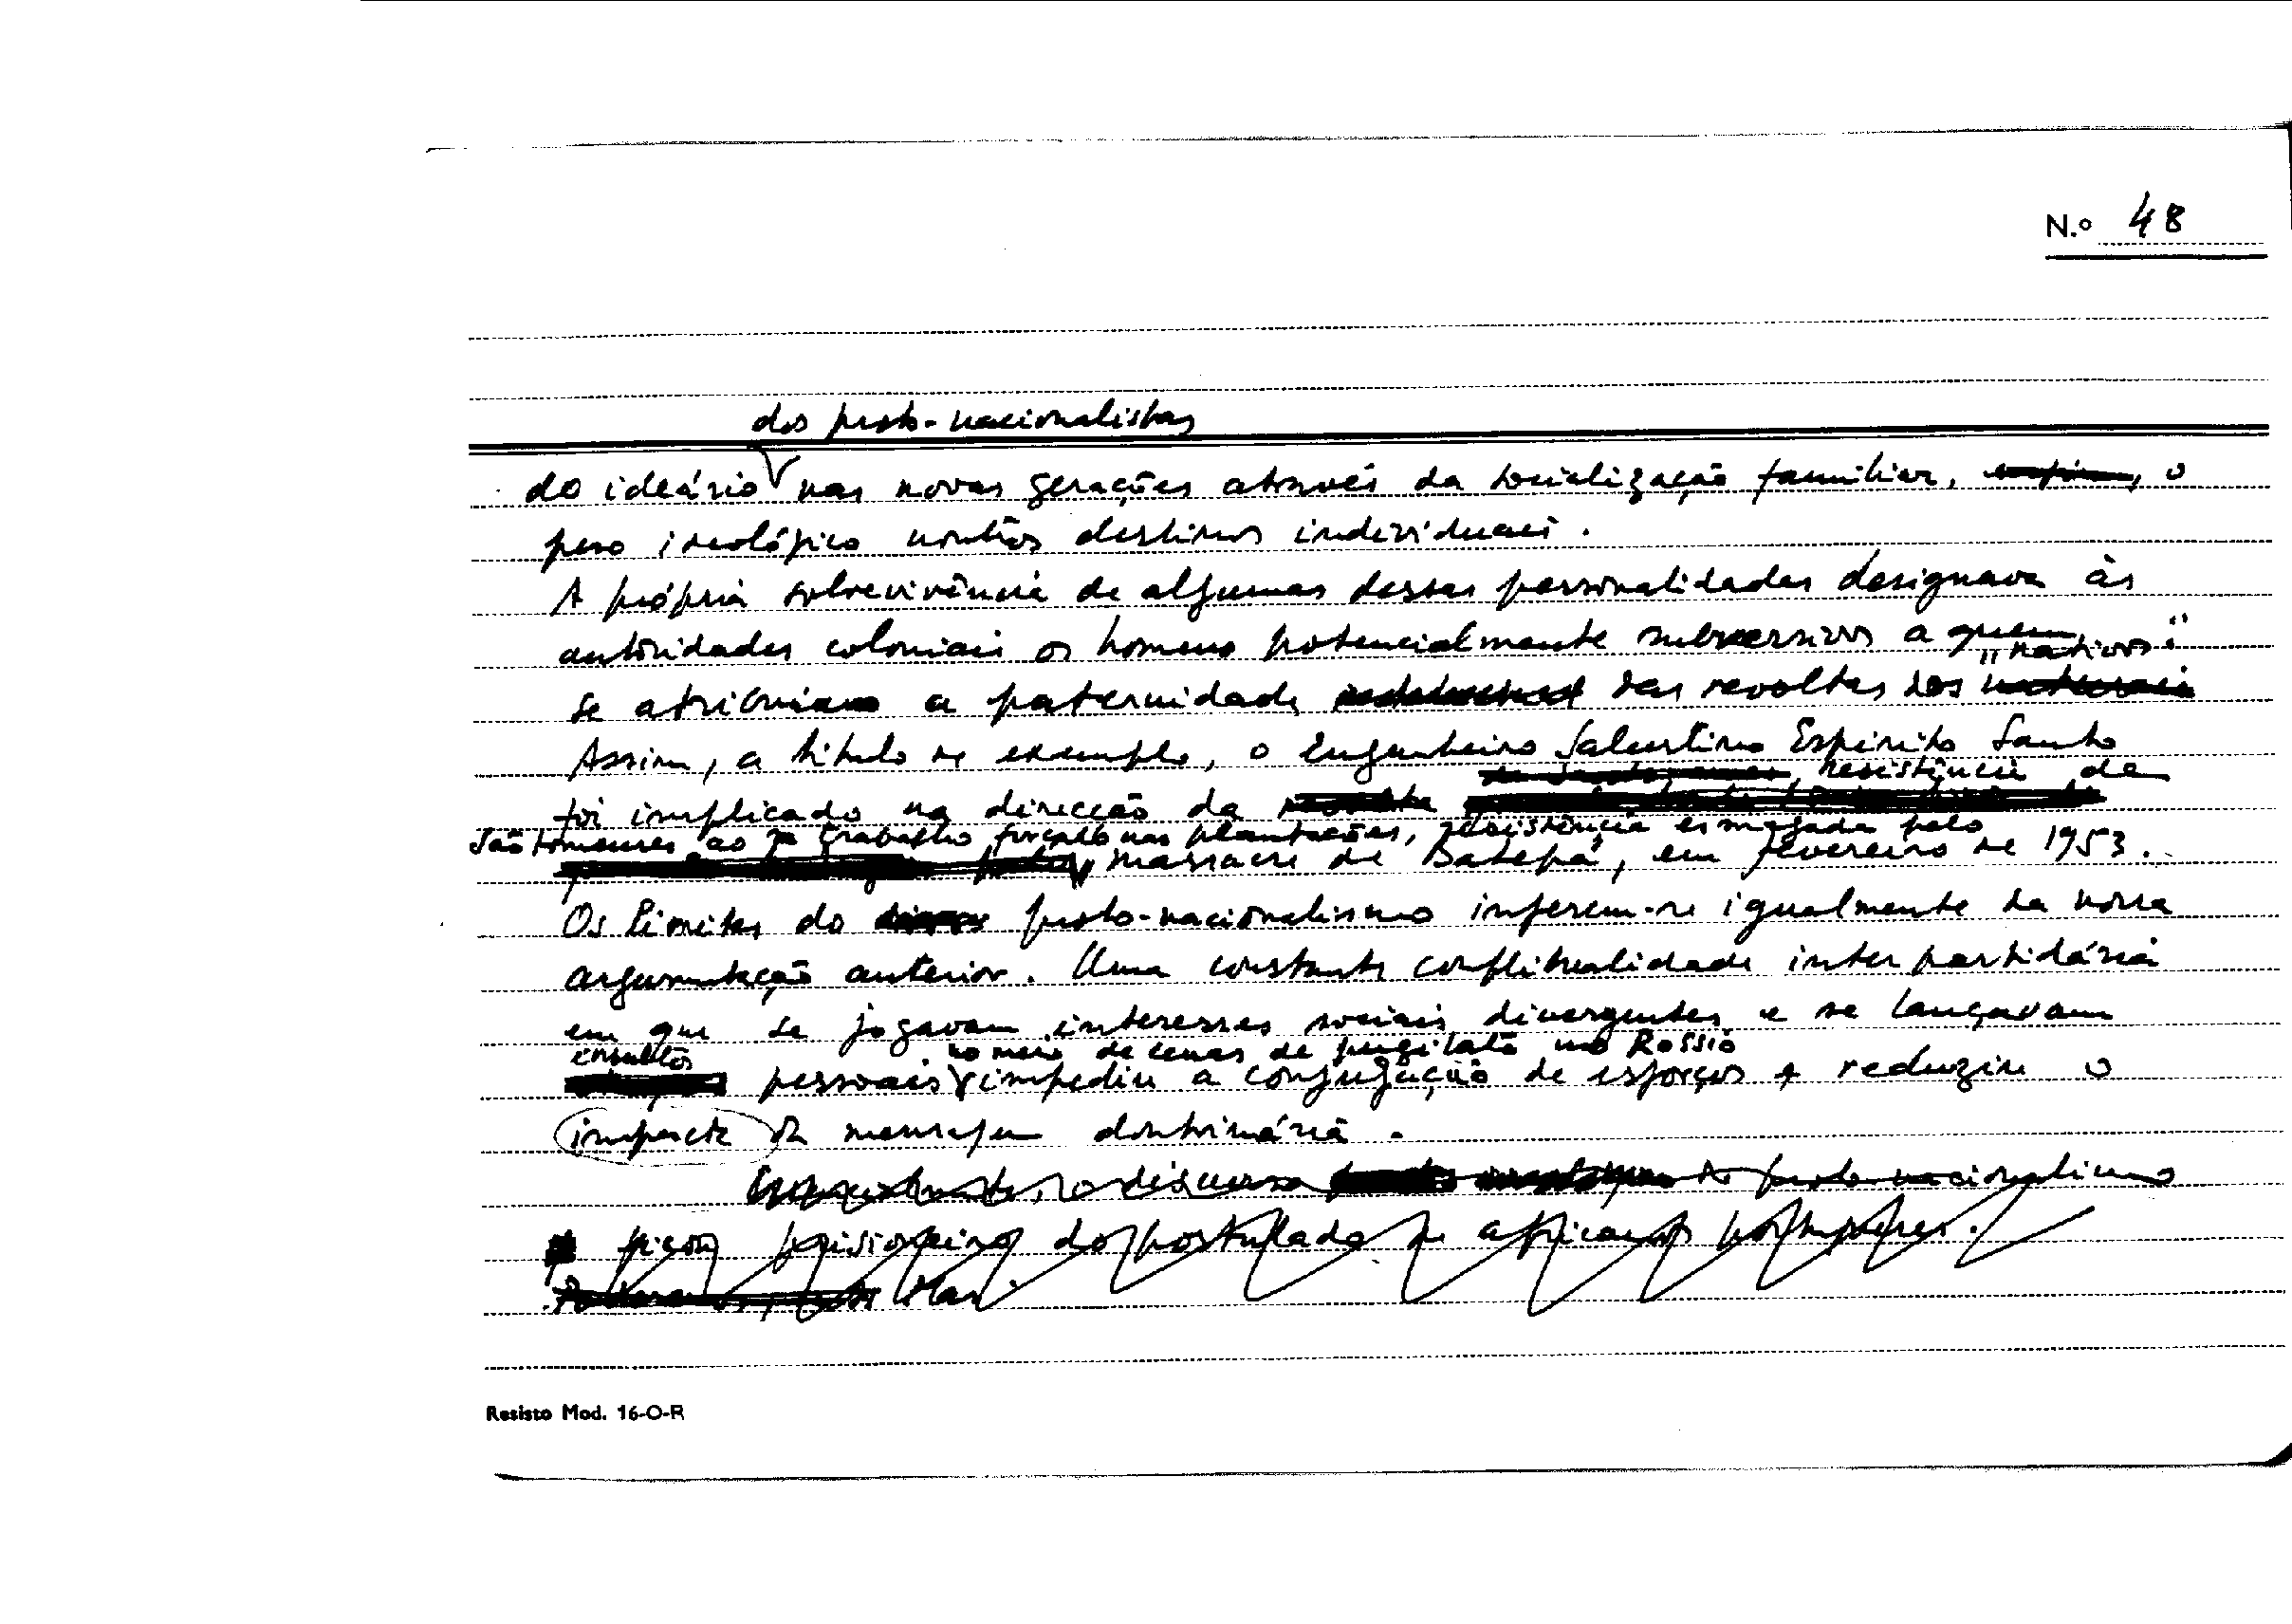 N.º 48
dos proto-nacionalistas
do ideário nas novas gerações através da socialização familiar, o
peso ideológico noutros destinos individuais.
A própria sobrevivência de algumas dessas personalidades designava às
autoridades coloniais os homens potencialmente subversivos a quem
"nativos".
se atribuiam a paternidade das revoltas dos
Assim, a título de exemplo, o Engenheiro Salustino Espírito Santo
resistência de
foi implicado na direcção da
São tomenses ao trabalho forçado nas plantações, resistência esmagada pelo
massacre de Batepá, em fevereiro de 1953.
Os limites do proto-nacionalismo inferem-se igualmente da nossa
argumentação anterior. Uma constante conflitualidade inter partidária
em que se jogavam interesses sociais divergentes e se lançavam
insultos no meio de cenas de pugilato no Rossio
pessoais impediu a conjugação de esforços e reduziu o
impacte da mensagem doutrinária.
o discurso do proto-nacionalismo
ficou prisioneiro do postulado de africanos portugueses.
Mas
Resisto Mod. 16-O-R